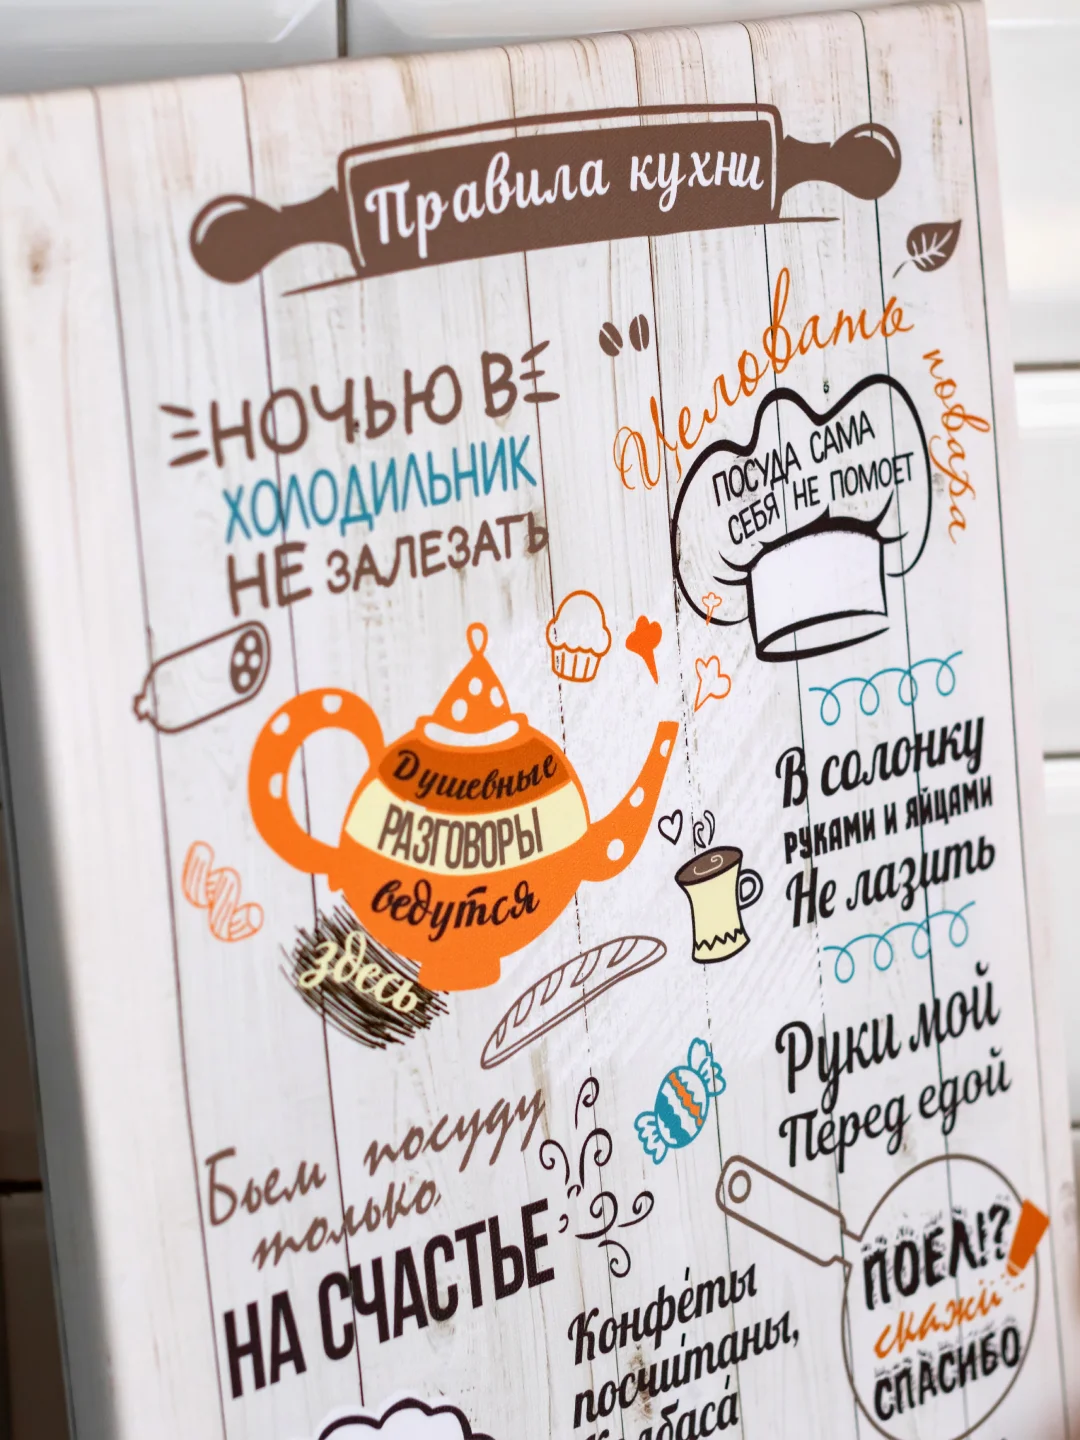 Правила кухни
НОЧЬЮ В
ХОЛОДИЛЬНИК
НЕ ЗАЛЕЗАТЬ
Целовать повара
ПОСУДА САМА
СЕБЯ НЕ ПОМОЕТ
Душевные
РАЗГОВОРЫ
ведутся
здесь
В солонку
РУКАМИ И ЯЙЦАМИ
Не лазить
Руки мой
Перед едой
Бьем посуду
только
НА СЧАСТЬЕ
ПОЕЛ!?
скажи
СПАСИБО
Конфе́ты
посчи́таны,